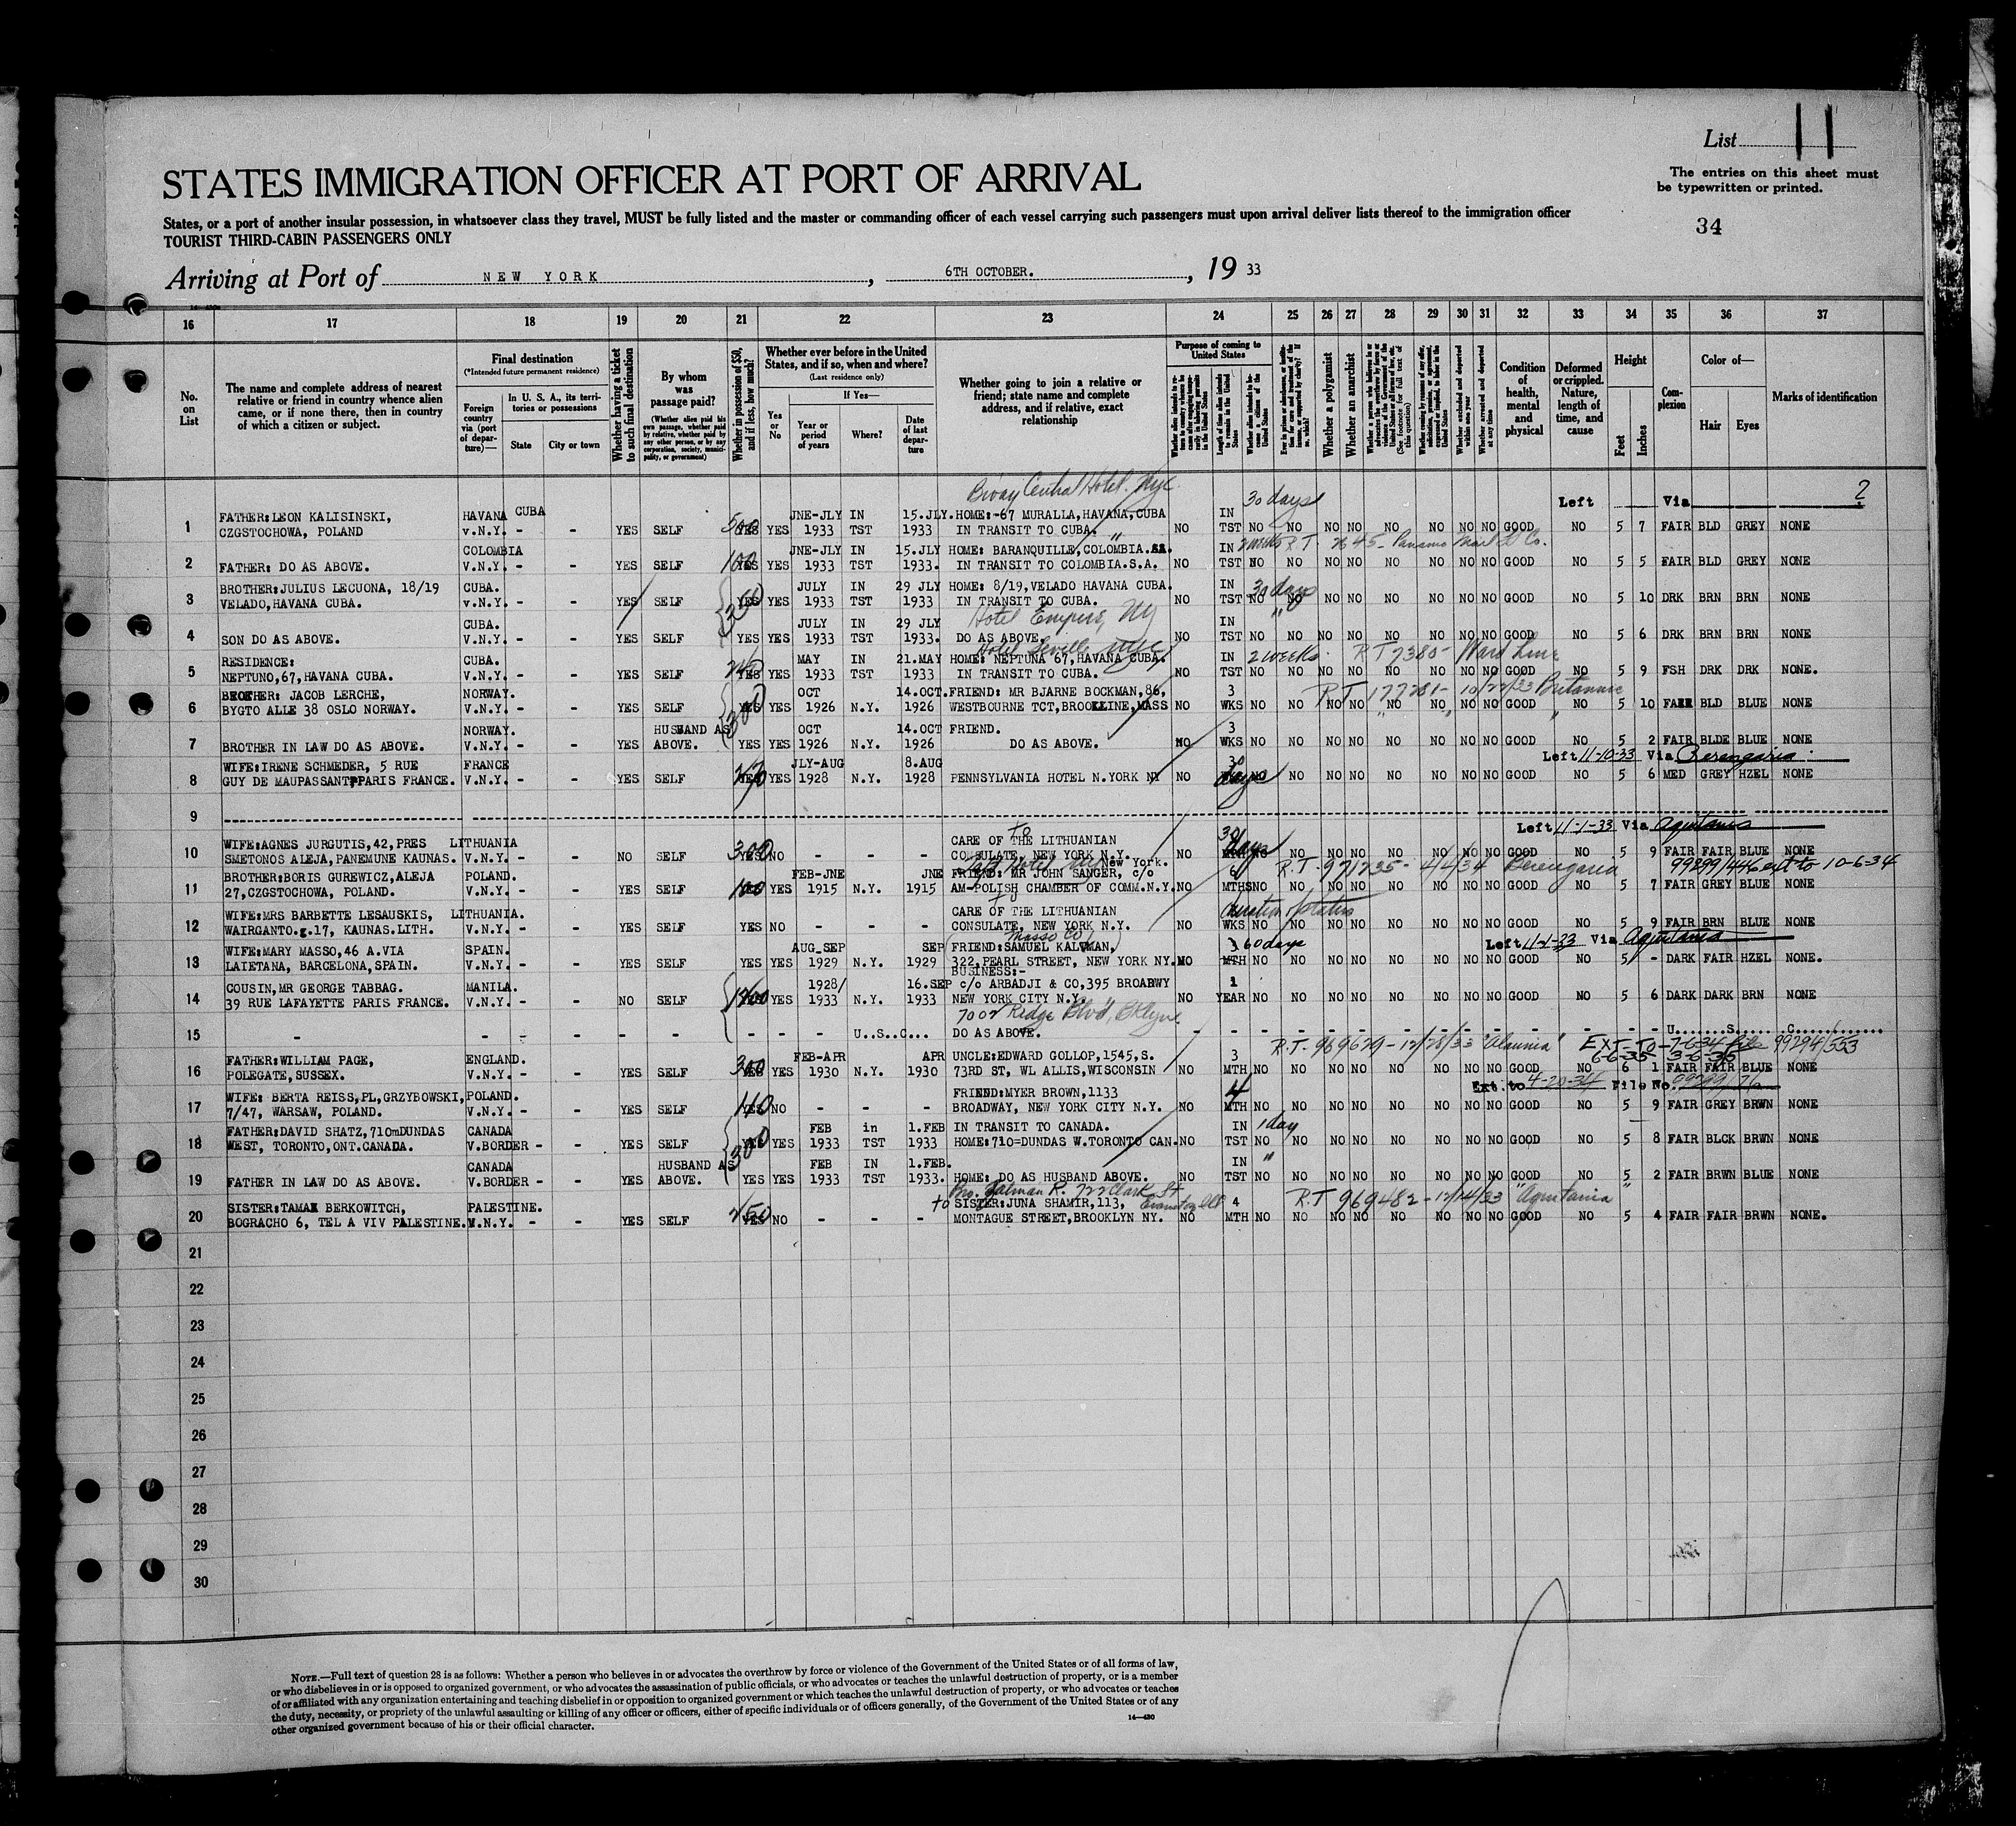 List 11
STATES IMMIGRATION OFFICER AT PORT OF ARRIVAL
The entries on this sheet must
be typewritten or printed.
States, or a port of another insular possession, in whatsoever class they travel, MUST be fully listed and the master or commanding officer of each vessel carrying such passengers must upon arrival deliver lists thereof to the immigration officer
TOURIST THIRD-CABIN PASSENGERS ONLY
34
Arriving at Port of NEW YORK, 6TH OCTOBER., 19 33
16 17 18 19 20 21 22 23 24 25 26 27 28 29 30 31 32 33 34 35 36 37
No. on List
The name and complete address of nearest relative or friend in country whence alien came, or if none there, then in country of which a citizen or subject.
Final destination
(*Intended future permanent residence)
Foreign country via (port of departure)—
In U. S. A., its territories or possessions
State
City or town
Whether having a ticket to such final destination
By whom was passage paid?
(Whether alien paid his own passage, whether paid by relative, whether paid by any other person, or by any corporation, society, municipality, or government)
Whether in possession of $50, and if less, how much?
Whether ever before in the United States, and if so, when and where?
(Last residence only)
Yes or No
If Yes—
Year or period of years
Where?
Date of last departure
Whether going to join a relative or friend; state name and complete address, and if relative, exact relationship
Purpose of coming to United States
Length of time alien intends to remain in the United States
Whether alien intends to become a citizen of the United States
Whether a polygamist
Whether an anarchist
Whether excluded and deported within one year
Whether arrested and deported at any time
Condition of health, mental and physical
Deformed or crippled. Nature, length of time, and cause
Height
Feet
Inches
Complexion
Color of—
Hair
Eyes
Marks of identification
Central Hotel. NYC 30 days Left Via ?
1 FATHER:LEON KALISINSKI, HAVANA CUBA JNE-JLY IN 15.JLY. HOME:-67 MURALLA,HAVANA,CUBA IN
CZGSTOCHOWA, POLAND v.N.Y. - - YES SELF 500 YES YES 1933 TST 1933 IN TRANSIT TO CUBA. NO TST NO NO NO NO NO NO NO NO GOOD NO 5 7 FAIR BLD GREY NONE
COLOMBIA JNE-JLY IN 15.JLY HOME: BARANQUILLE,COLOMBIA.SA. IN R.T. 2645- Panama Mail
2 FATHER: DO AS ABOVE. V.N.Y. - - YES SELF 100 YES YES 1933 TST 1933. IN TRANSIT TO COLOMBIA.S.A. NO TST NO NO NO NO NO NO NO NO GOOD NO 5 5 FAIR BLD GREY NONE
3 BROTHER:JULIUS LECUONA, 18/19 CUBA. JULY IN 29 JLY HOME: 8/19,VELADO HAVANA CUBA. IN 30 days
VELADO,HAVANA CUBA. v.N.Y. - - YES SELF YES YES 1933 TST 1933 IN TRANSIT TO CUBA. NO TST NO NO NO NO NO NO NO NO GOOD NO 5 10 DRK BRN BRN NONE
CUBA. JULY IN 29 JLY Hotel Empire, NY IN "
4 SON DO AS ABOVE. V.N.Y. - - YES SELF YES YES 1933 TST 1933. DO AS ABOVE. NO TST NO NO NO NO NO NO NO NO GOOD NO 5 6 DRK BRN BRN NONE
Hotel Seville NYC
5 RESIDENCE: CUBA. MAY IN 21.MAY HOME: NEPTUNA 67,HAVANA CUBA. IN 2 WEEKS. R T 7380- Ward Line
NEPTUNO,67,HAVANA CUBA. V.N.Y. - - YES SELF 240 YES YES 1933 TST 1933 IN TRANSIT TO CUBA. NO TST NO NO NO NO NO NO NO NO GOOD NO 5 9 FSH DRK DRK NONE.
6 BROTHER: JACOB LERCHE, NORWAY. OCT 14.OCT. FRIEND: MR BJARNE BOCKMAN,86, 3 R T 177281- 10/27/33 Britannic
BYGTO ALLE 38 OSLO NORWAY. V.N.Y. - - YES SELF 300 YES YES 1926 N.Y. 1926 WESTBOURNE TCT,BROOKLINE,MASS NO WKS NO NO NO NO NO NO NO NO GOOD NO 5 10 FAIR BLD BLUE NONE
NORWAY. HUSBAND AS OCT 14.OCT FRIEND. 3
7 BROTHER IN LAW DO AS ABOVE. V.N.Y. - - YES ABOVE. YES YES 1926 N.Y. 1926 DO AS ABOVE. NO WKS NO NO NO NO NO NO NO NO GOOD NO 5 2 FAIR BLDE BLUE NONE
8 WIFE:IRENE SCHMEDER, 5 RUE FRANCE JLY-AUG 8.AUG 30 days Left 11-10-33 Via Berengaria
GUY DE MAUPASSANT,PARIS FRANCE. V.N.Y. - - YES SELF YES YES 1928 N.Y. 1928 PENNSYLVANIA HOTEL N.YORK NY NO NO NO NO NO NO NO NO NO GOOD NO 5 6 MED GREY HZEL NONE
9
Left 11-1-33 Via Aquitania
10 WIFE:AGNES JURGUTIS,42,PRES LITHUANIA CARE OF THE LITHUANIAN 30 days
SMETONOS ALEJA,PANEMUNE KAUNAS. V.N.Y. - - NO SELF 300 YES NO - - - CONSULATE, NEW YORK N.Y. NO MTH NO NO NO NO NO NO NO NO GOOD NO 5 9 FAIR FAIR BLUE NONE
New York. R.T. 971735- 4/4/34 Berengaria 99299/446 ext to 10-6-34
11 BROTHER:BORIS GUREWICZ,ALEJA POLAND. FEB-JNE JNE FRIEND: MR JOHN SANGER, c/o 6
27,CZGSTOCHOWA, POLAND. V.N.Y. - - YES SELF 100 YES 1915 N.Y. 1915 AM-POLISH CHAMBER OF COMM.N.Y. NO MTHS NO NO NO NO NO NO NO NO GOOD NO 5 7 FAIR GREY BLUE NONE
12 WIFE:MRS BARBETTE LESAUSKIS, LITHUANIA. CARE OF THE LITHUANIAN duration status
WAIRGANTO.g.17, KAUNAS.LITH. V.N.Y. - - YES SELF YES NO - - - CONSULATE, NEW YORK N.Y. NO WKS NO NO NO NO NO NO NO NO GOOD NO 5 9 FAIR BRN BLUE NONE
Masso Co Left 11-1-33 Via Aquitania
13 WIFE:MARY MASSO,46 A.VIA SPAIN. AUG_SEP SEP FRIEND:SAMUEL KALVMAN, 3 60 days
LAIETANA, BARCELONA,SPAIN. V.N.Y. - - YES SELF YES YES 1929 N.Y. 1929 322,PEARL STREET, NEW YORK NY. NO MTH NO NO NO NO NO NO NO NO GOOD NO 5 - DARK FAIR HZEL NONE.
BUSINESS:-
14 COUSIN,MR GEORGE TABBAG. MANILA. 1928/ 16.SEP c/o ARBADJI & CO,395 BROADWY 1
39 RUE LAFAYETTE PARIS FRANCE. V.N.Y. - - NO SELF YES YES 1933 N.Y. 1933 NEW YORK CITY N.Y. NO YEAR NO NO NO NO NO NO NO NO GOOD NO 5 6 DARK DARK BRN NONE
7002 Ridge Blvd, Bklyn
15 - - - - - - - - - U..S..C... DO AS ABOVE. - - - - - - - - - - - - - - U.......S......C............
R.T. 969629-12/28/33 "Alaunia" EXT-TO-7-6-34 File 99294/553
6-6-35 3-6-35
16 FATHER:WILLIAM PAGE, ENGLAND. FEB-APR APR UNCLE:EDWARD GOLLOP,1545,S. 3
POLEGATE,SUSSEX. V.N.Y. - - YES SELF 300 YES YES 1930 N.Y. 1930 73RD ST, WL ALLIS,WISCONSIN NO MTH NO NO NO NO NO NO NO NO GOOD NO 6 1 FAIR FAIR BLUE NONE
Ext. to 4-20-34 File No.
17 WIFE: BERTA REISS,PL,GRZYBOWSKI, POLAND. FRIEND:MYER BROWN,1133 4
7/47, WARSAW, POLAND. V.N.Y. - - YES SELF 110 YES NO - - - BROADWAY, NEW YORK CITY N.Y. NO MTH NO NO NO NO NO NO NO NO GOOD NO 5 9 FAIR GREY BRWN NONE
18 FATHER:DAVID SHATZ,710mDUNDAS CANADA FEB in 1.FEB IN TRANSIT TO CANADA. IN 1 day
WEST, TORONTO,ONT.CANADA. V.BORDER - - YES SELF 300 YES YES 1933 TST 1933 HOME:710=DUNDAS W.TORONTO CAN. NO TST NO NO NO NO NO NO NO NO GOOD NO 5 8 FAIR BLCK BRWN NONE
CANADA HUSBAND AS FEB IN 1.FEB. IN "
19 FATHER IN LAW DO AS ABOVE. V.BORDER - - YES ABOVE. YES YES 1933 TST 1933. HOME: DO AS HUSBAND ABOVE. NO TST NO NO NO NO NO NO NO NO GOOD NO 5 2 FAIR BRWN BLUE NONE
Bro. Zalman R. 722 Clark St Evanston Ill
20 SISTER:TAMAR BERKOWITCH, PALESTINE. to SISTER:JUNA SHAMIR,113, 4 R.T 969482-12/14/33 "Aquitania"
BOGRACHO 6, TEL A VIV PALESTINE. V.N.Y. - - YES SELF 250 YES NO - - - MONTAGUE STREET,BROOKLYN NY. NO MTH NO NO NO NO NO NO NO NO GOOD NO 5 4 FAIR FAIR BRWN NONE.
21
22
23
24
25
26
27
28
29
30
NOTE.—Full text of question 28 is as follows: Whether a person who believes in or advocates the overthrow by force or violence of the Government of the United States or of all forms of law,
or who disbelieves in or is opposed to organized government, or who advocates the assassination of public officials, or who advocates or teaches the unlawful destruction of property, or is a member
of or affiliated with any organization entertaining and teaching disbelief in or opposition to organized government or which teaches the unlawful destruction of property, or who advocates or teaches
the duty, necessity, or propriety of the unlawful assaulting or killing of any officer or officers, either of specific individuals or of officers generally, of the Government of the United States or of any
other organized government because of his or their official character.
14—430